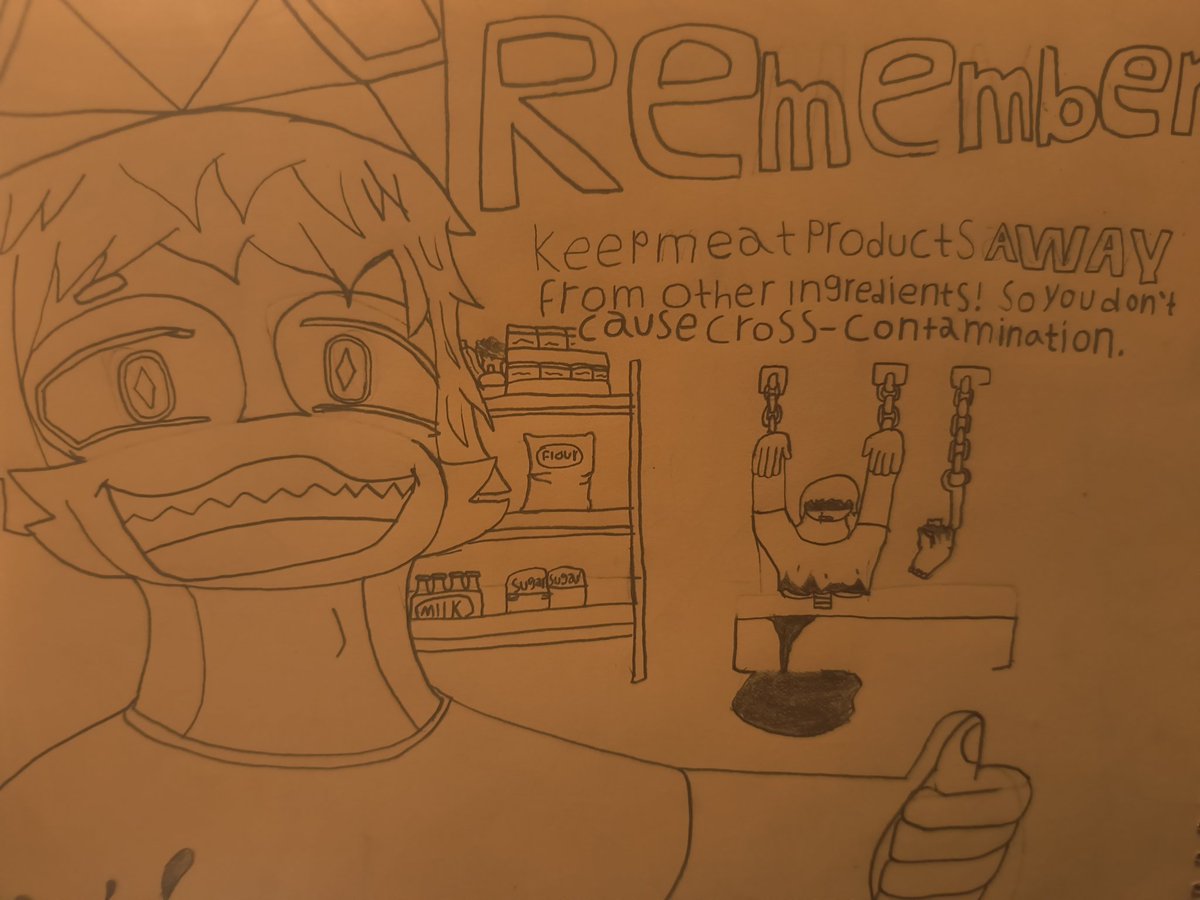 Remember
Keep meat Products AWAY
from other ingredients! So you don't
cause cross-contamination.
Flour
MILK
Sugar Sugar